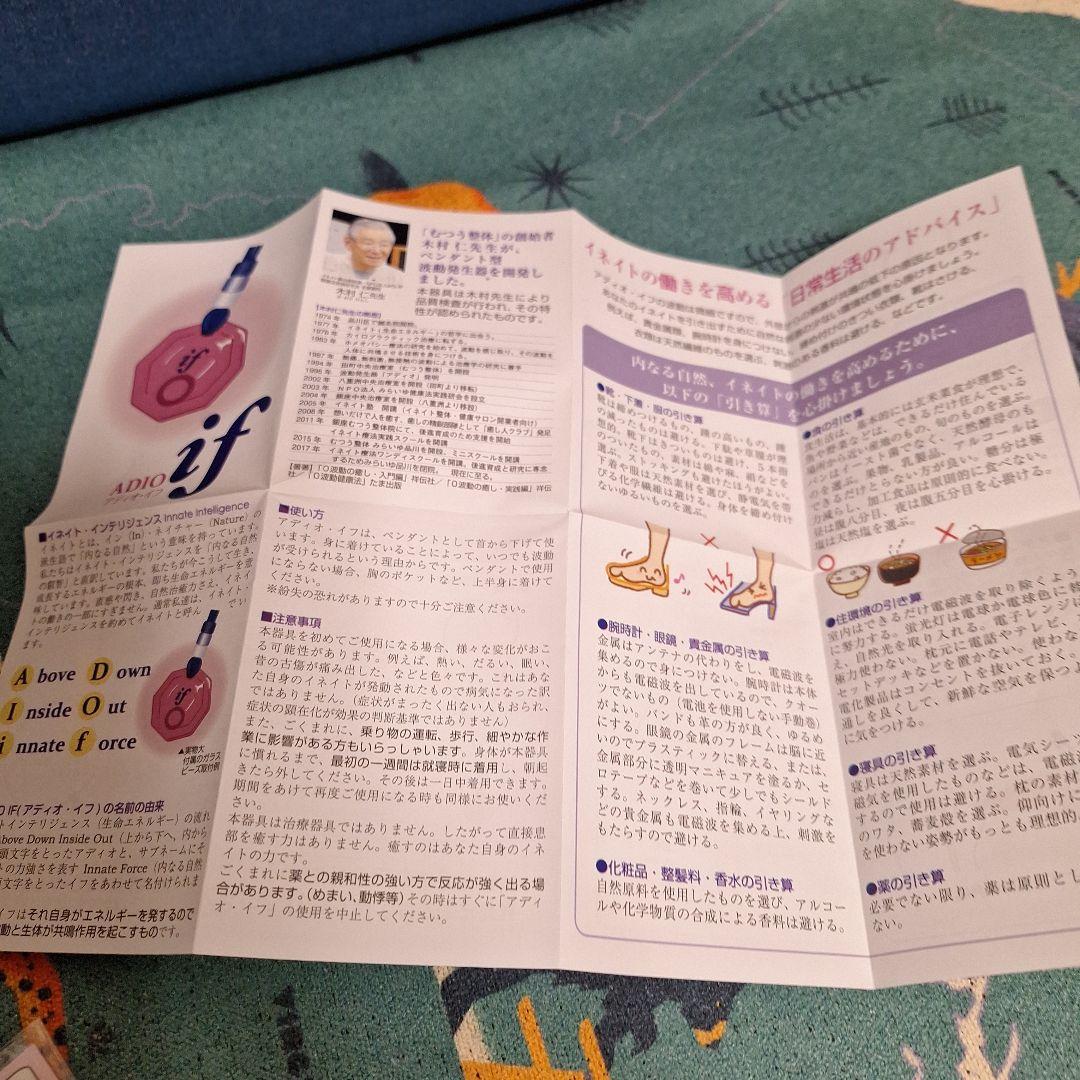 if
if
ADIO
アディオ・イフ
「むつう整体」の創始者
木村 仁先生が、
ペンダント型
波動発生器を開発し
ました。
本器具は木村先生により
品質検査が行われ、その特
性が認められたものです。
木村 仁先生
【木村仁先生の略歴】
1974年 品川区で鍼灸院開院。
1977年 イネイト(生命エネルギー)の哲学に出会う。
1978年 カイロプラクティック治療に転ずる。
1983年 ホメオパシー療法の研究を始めて、波動を感じ取り、その波動を
人体に共鳴させる技術を身につける。
1987年 無痛、無刺激、無接触の波動による治療学の研究に着手
1994年 田町中央治療室(むつう整体)を開設
1996年 波動発生器「アディオ」発明
2002年 八重洲中央治療室を開設(田町より移転)
2003年 NPO法人 みらい分健康法実践研修会を設立
2004年 銀座中央治療室を開設(八重洲より移設)
2005年 イネイト塾 開講(イネイト整体・健康サロン開業者向け)
2008年 想いだけで人を癒す、癒しの精鋭部隊として「癒し人クラブ」発足
2011年 銀座むつう整体院にて、後進育成のため支援を開始
イネイト療法実践スクールを開講
2015年 むつう整体 みらいゆ品川を開設、ミニスクールを開講
2017年 イネイト療法ワンディスクールを開講。後進育成と研究に専念
するためみらいゆ品川を閉院。 現在に至る。
【著書】「O波動の癒し・入門編」祥伝社/「O波動の癒し・実践編」祥伝
社/「O波動健康法」たま出版
■イネイト・インテリジェンス Innate Intelligence
イネイトとは、イン(In)・ネイチャー(Nature)の
派生語で「内なる自然」という意味を持っています。
私たちはイネイト・インテリジェンスを「内なる自然
の叡智」と直訳しています。私たちが今こうして生き、
成長するエネルギーの根本、即ち生命エネルギーを意
味しています。直感や閃き、自然治癒力さえ、イネイ
トの働きの一部にすぎません。通常私達は、イネイト・
インテリジェンスを約めてイネイトと呼んでいま
す。
Above Down
Inside Out
innate force
if
▲実物大
付属のガラス
ビーズ取付例
O IF(アディオ・イフ)の名前の由来
トインテリジェンス(生命エネルギー)の流れ
Above Down Inside Out(上から下へ、内から
頭文字をとったアディオと、サブネームにそ
トの力強さを表す Innate Force(内なる自然
頭文字をとったイフをあわせて名付けられま
イフはそれ自身がエネルギーを発するので
動と生体が共鳴作用を起こすものです。
■使い方
アディオ・イフは、ペンダントとして首から下げて使
います。身に着けていることによって、いつでも波動
が受けられるという理由からです。ペンダントで使用
にならない場合、胸のポケットなど、上半身に着けて
ください。
※紛失の恐れがありますので十分ご注意ください。
■注意事項
本器具を初めてご使用になる場合、様々な変化がおこ
る可能性があります。例えば、熱い、だるい、眠い、
昔の古傷が痛み出した、などと色々です。これはあな
た自身のイネイトが発動されたもので病気になった訳
ではありません。(症状がまったく出ない人もおられ、
症状の顕在化が効果の判断基準ではありません)
また、ごくまれに、乗り物の運転、歩行、細やかな作
業に影響がある方もいらっしゃいます。身体が本器具
に慣れるまで、最初の一週間は就寝時に着用し、朝起
きたら外してください。その後は一日中着用できます。
期間をあけて再度ご使用になる時も同様にお使いくだ
さい。
本器具は治療器具ではありません。したがって直接患
部を癒す力はありません。癒すのはあなた自身のイネ
イトの力です。
ごくまれに薬との親和性の強い方で反応が強く出る場
合があります。(めまい、動悸等)その時はすぐに「アディ
オ・イフ」の使用を中止してください。
イネイトの働きを高める「日常生活のアドバイス」
アディオ・イフの波動は微細ですので、外部
あなたのイネイトを引き出すために自然な
例えば、貴金属類、腕時計を身につけない、
衣類は天然繊維のものを選ぶ、
低下の原因となります。
ない環境や状態を心掛けましょう。
締め付けのきつい衣類、靴はさける、
ある香料は避ける、などです。
内なる自然、イネイトの働きを高めるために、
以下の「引き算」を心掛けましょう。
●靴・下着・服の引き算
靴は締めつけるもの、踵の高いもの、踵
の減ったものは避ける。下駄や草履が理
想的。靴下はきついものは避け、5本指
のついたもの、素材は綿や絹、麻などを
選ぶ。ストッキングも避けたほうがよい。
下着や服は天然素材を選び、静電気を帯
びる化学繊維は避ける。身体を締め付け
ないゆるいものを選ぶ。
●腕時計・眼鏡・貴金属の引き算
金属はアンテナの代わりをし、電磁波を
集めるので身につけない。腕時計は本体
からも電磁波を出しているので、クオー
ツでないもの(電池を使用しない手動巻)
がよい。バンドも革の方が良く、ゆるめ
にする。眼鏡の金属のフレームは脳に近
いのでプラスティックに替える、または、
金属部分に透明マニキュアを塗るか、セ
ロテープなどを巻いて少しでもシールド
する。ネックレス、指輪、イヤリングな
どの貴金属も電磁波を集める上、刺激を
もたらすので避ける。
●化粧品・整髪料・香水の引き算
自然原料を使用したものを選び、アルコー
ルや化学物質の合成による香料は避ける。
●食の引き算
食生活は、基本的には玄米菜食が理想で、
できるだけ住んでいる
土地で取れたものを選ぶ。
パンは天然酵母のも
のを選ぶ。果物、卵、
できるだけとらない方が良い。糖分は極
力減らし、加工食品は原則的に食べない。
昼は腹八分目、夜は腹五分目を心掛ける。
塩は天然塩を選ぶ。
●住環境の引き算
室内はできるだけ電磁波を取り除くよう
に努力する。蛍光灯は電球か電球色に替
え、自然光を取り入れる。電子レンジは
極力使わない。枕元に電話やテレビ、
セットデッキなどを置かない。使わな
電化製品はコンセントを抜いておく。
通しを良くして、新鮮な空気を保つよ
に気をつける。
●寝具の引き算
寝具は天然素材を選ぶ。電気シー
磁気を使用したものなどは、電磁
するので使用は避ける。枕の素材
のワタ、蕎麦殻を選ぶ。仰向けに
を使わない姿勢がもっとも理想的
●薬の引き算
必要でない限り、薬は原則とし
ない。